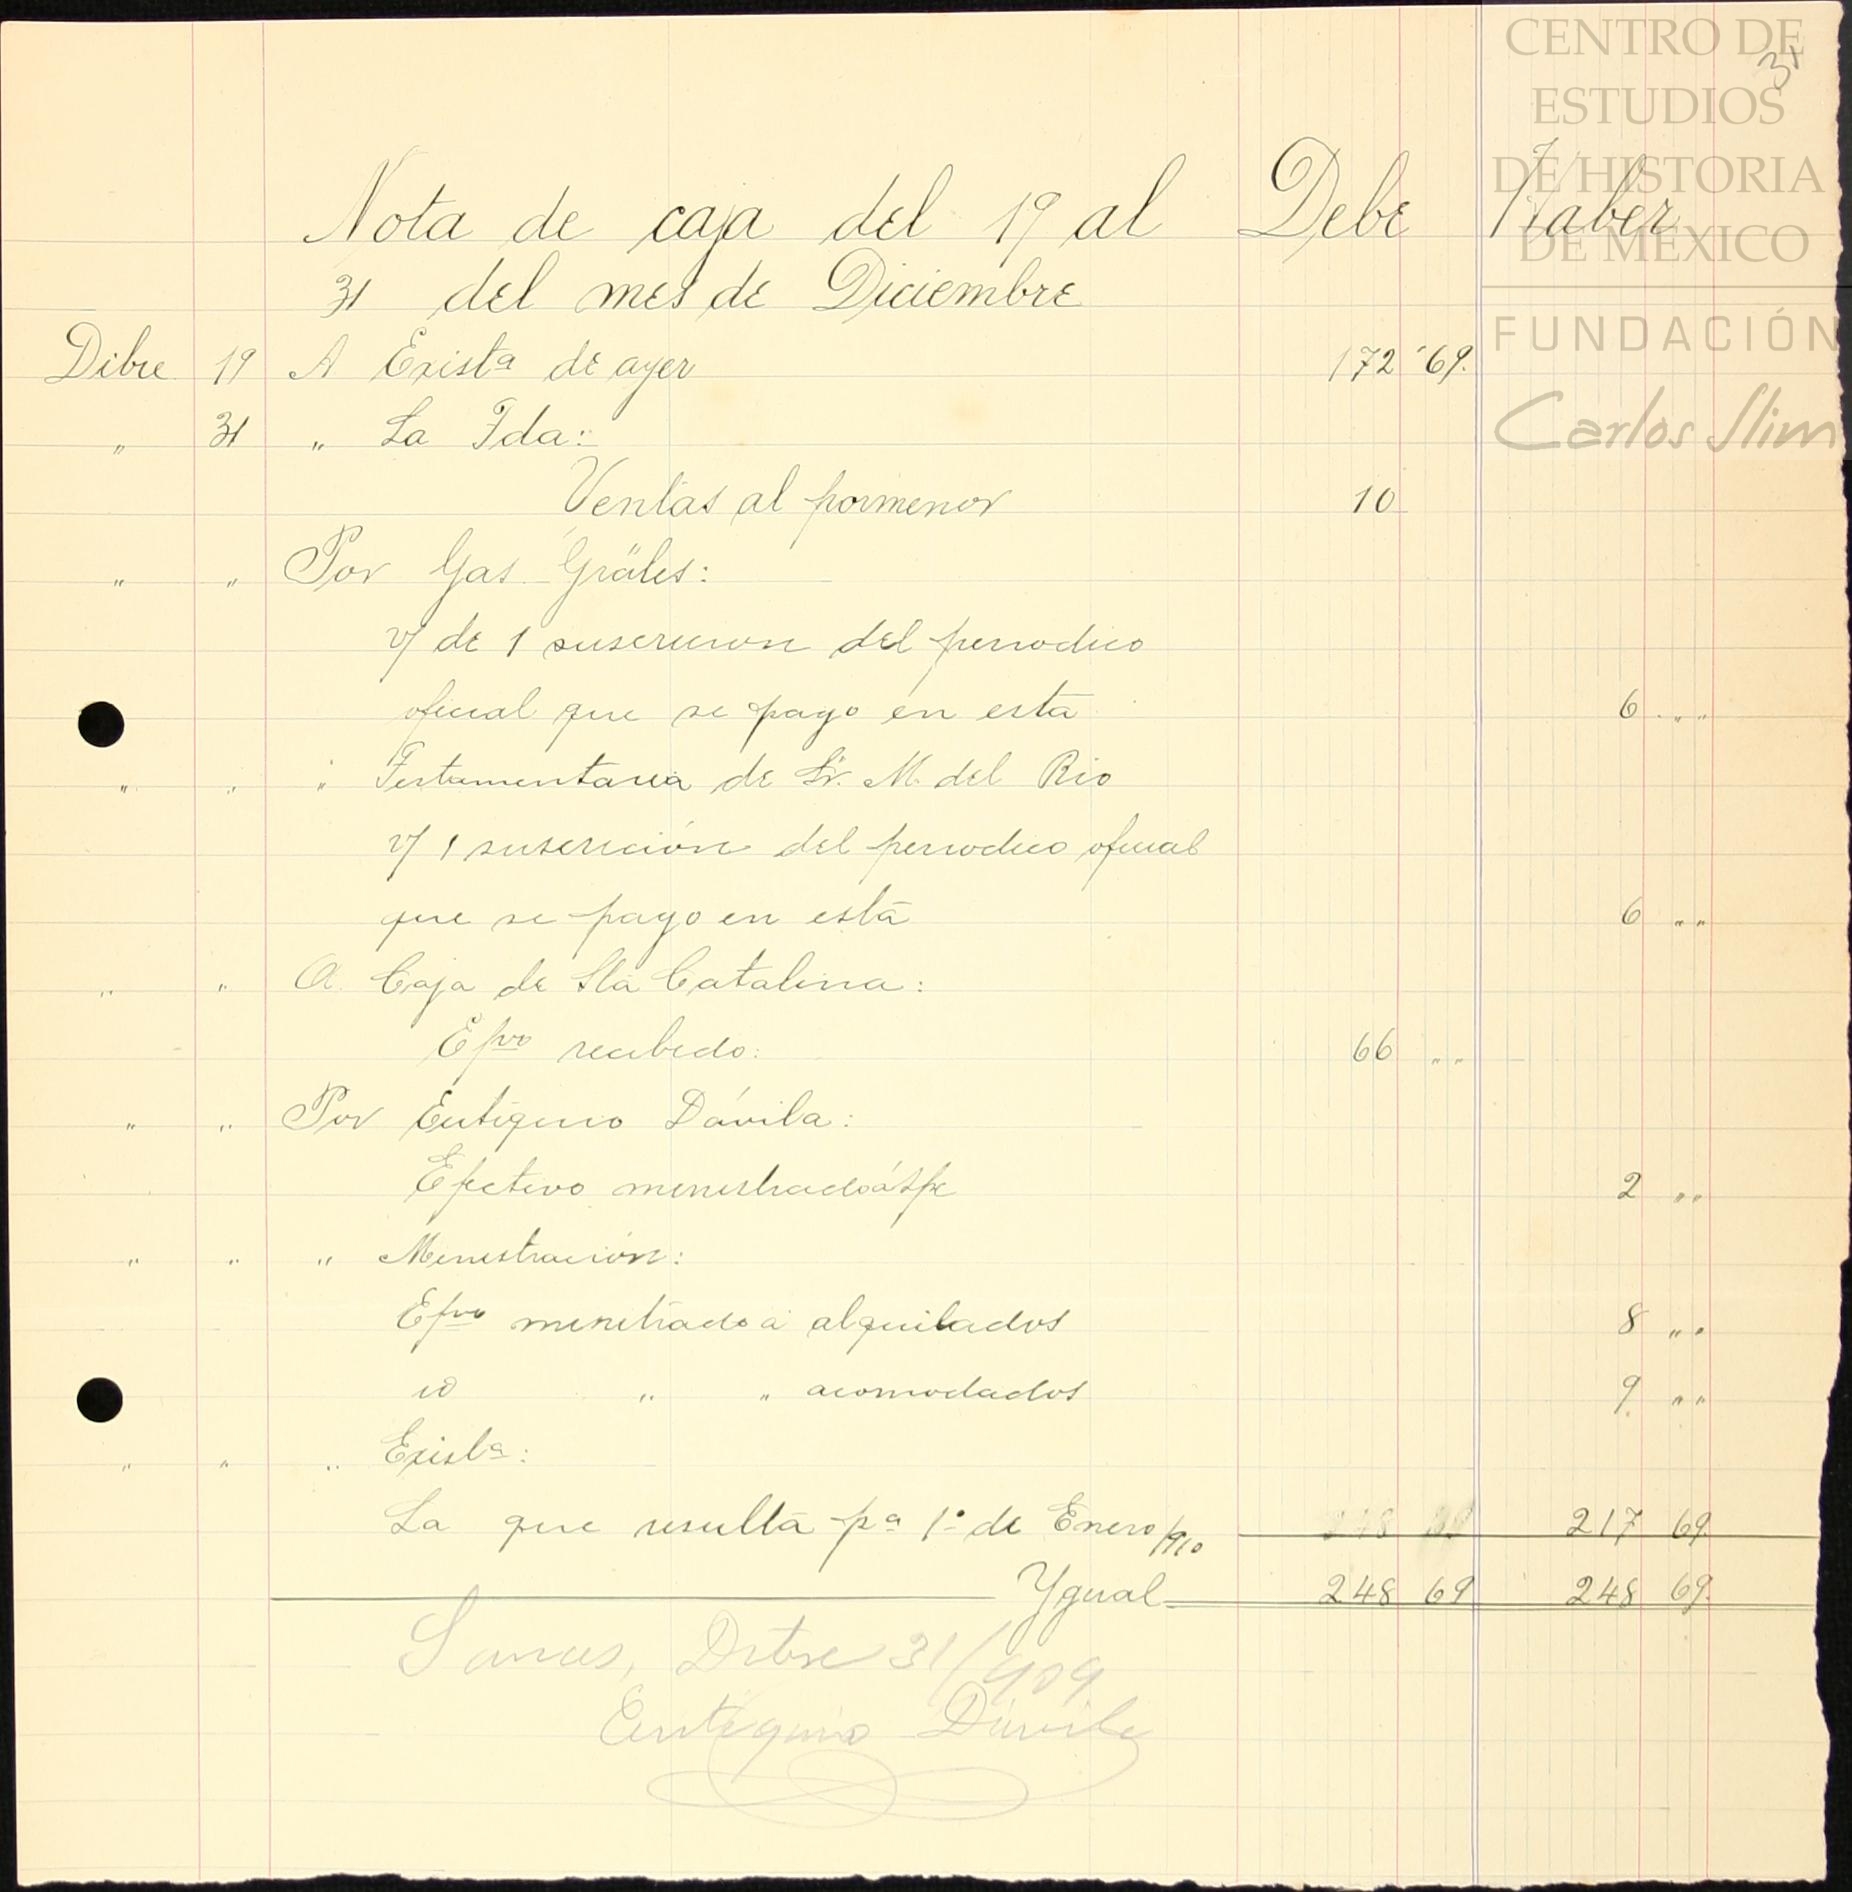 CENTRO DE
ESTUDIOS
DE HISTORIA
DE MEXICO
FUNDACIÓN
Carlos Slim
31
Nota de caja del 19 al Debe Haber
31 del mes de Diciembre
Dibre 19 A Existª de ayer 172 69.
" 31 " La Tda:
Ventas al pormenor 10
" " Por Gas. Gräles:
v/ de 1 suscricion del periodico
oficial que se pago en esta 6 " "
" " " Testamentaria de Sr. M. del Rio
v/ 1 suscrición del periodico oficial
que se pago en esta 6 " "
" " A Caja de Sta Catalina:
Efvo recibido: 66 " "
" " Por Eutiquio Dávila:
Efectivo menistrado á 66 2 " "
" " " Menistración:
Efvo menitrado a alquilados 8 " "
id " " acomodados 9 " "
" " " Existª:
La que resulta pª 1º de Enero/910 248 69 217 69.
Ygual 248 69 248 69.
Dibre 31/909
Eutiquio Dávila